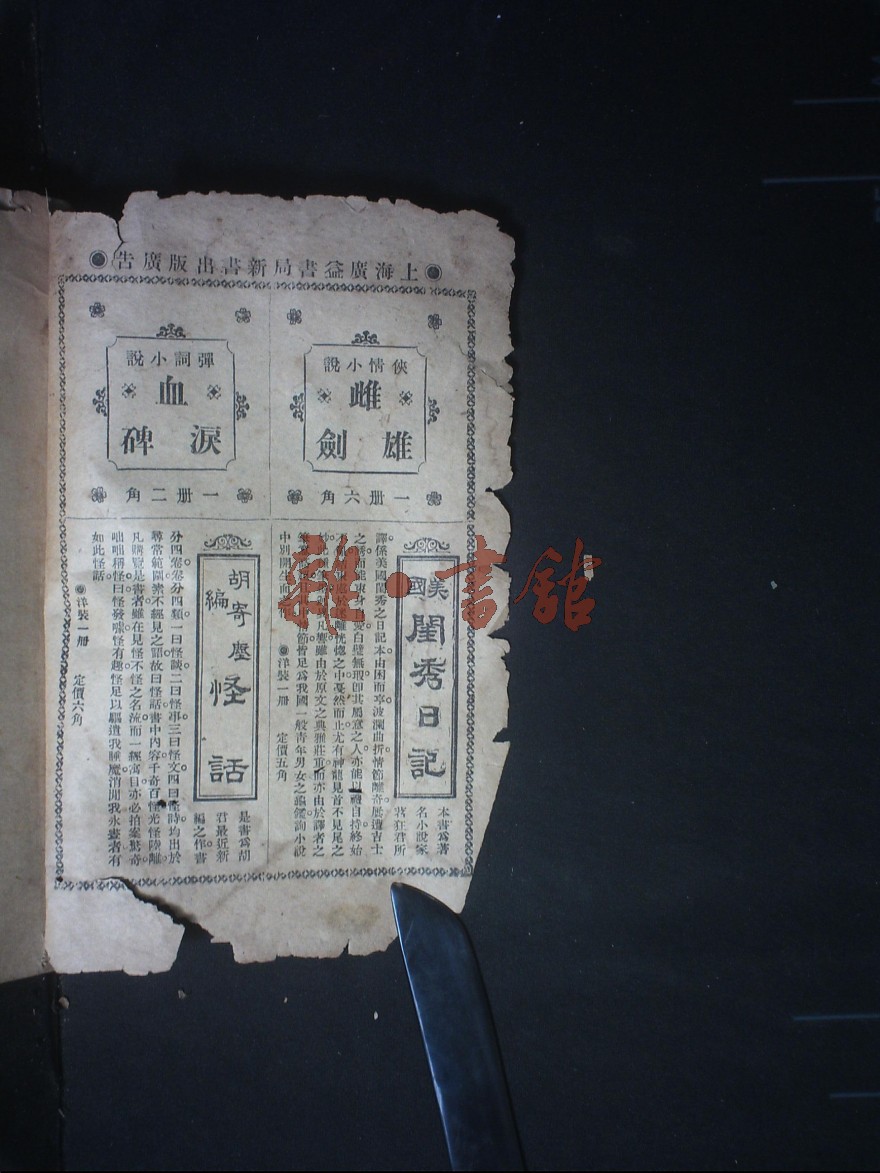 上海廣益書局新書出版廣告
俠情小說
雌
雄劍
一册六角
彈詞小說
血
淚碑
一册二角
美國閨秀日記
本書爲著
名小說家
君所
譯係美國閨秀之日記本由困而亨波瀾曲折情節離奇屢遭吉士
之誘而能束身自愛白璧無瑕即其屬意之人亦能以禮自持終始
處於迷離恍惚之中戞然而止尤有神龍見首不見尾之
雖由於原文之典雅莊重而亦由於譯者之
節皆足爲我國一般青年男女之鍼詢小說
中別開生面
洋裝一册 定價五角
胡寄塵編怪話
是書爲胡
君最近新
編之作書
分四卷卷分四類一曰怪談二曰怪事三曰怪文四曰怪詩均出於
尋常範圍業不經見之語故曰怪話書中內容千奇百怪光怪陸離
凡購覽是書者雖在見怪不怪之名流而一經寓目亦必拍案驚奇
咄咄稱怪曰怪發噱怪有趣怪足以驅遣我睡魔消閒我永晝者有
如此怪話
洋裝一册 定價六角
雜·書館